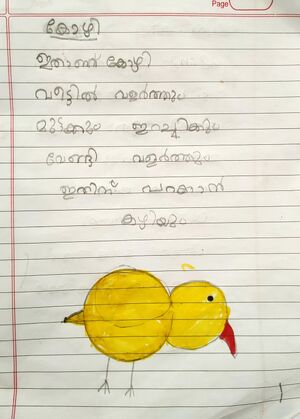 Page
കോഴി
ഇതാണ് കോഴി
വീട്ടിൽ വളർത്തും
മുട്ടക്കും ഇറച്ചിക്കും
വേണ്ടി വളർത്തും
ഇതിന് പറക്കാൻ
കഴിയും